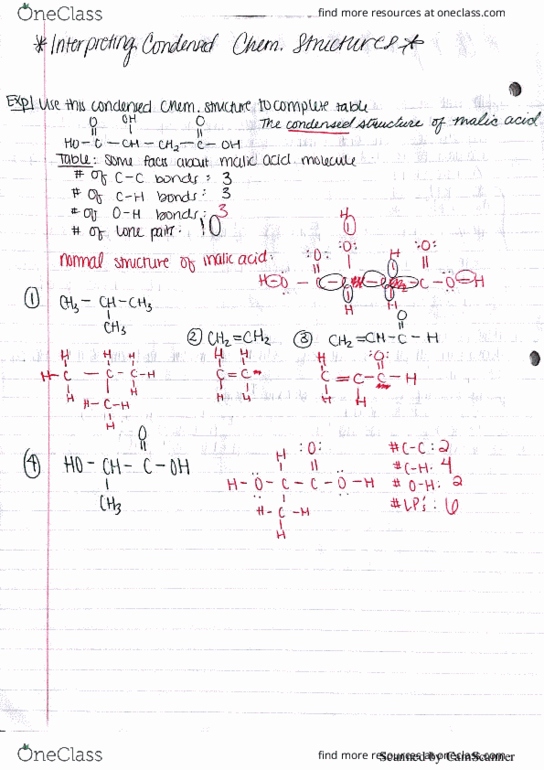 OneClass
find more resources at oneclass.com
* Interpreting Condensed Chem. Structures *
Exp1 Use this condensed chem. structure to complete table
The condensed structure of malic acid
O OH O
HO-C-CH-CH2-C-OH
Table: Some facts about malic acid molecule
# of C-C bonds: 3
# of C-H bonds: 3
# of O-H bonds: 3
# of lone pairs: 10
normal structure of malic acid:
① CH3-CH-CH3
CH3
② CH2=CH2
③ CH2=CH-C-H
O
④ HO-CH-C-OH
O
CH3
H-O-C-C-O-H
#C-C: 2
#C-H: 4
#O-H: 2
#LP's: 6
OneClass
find more resources at oneclass.com
Scanned by CamScanner